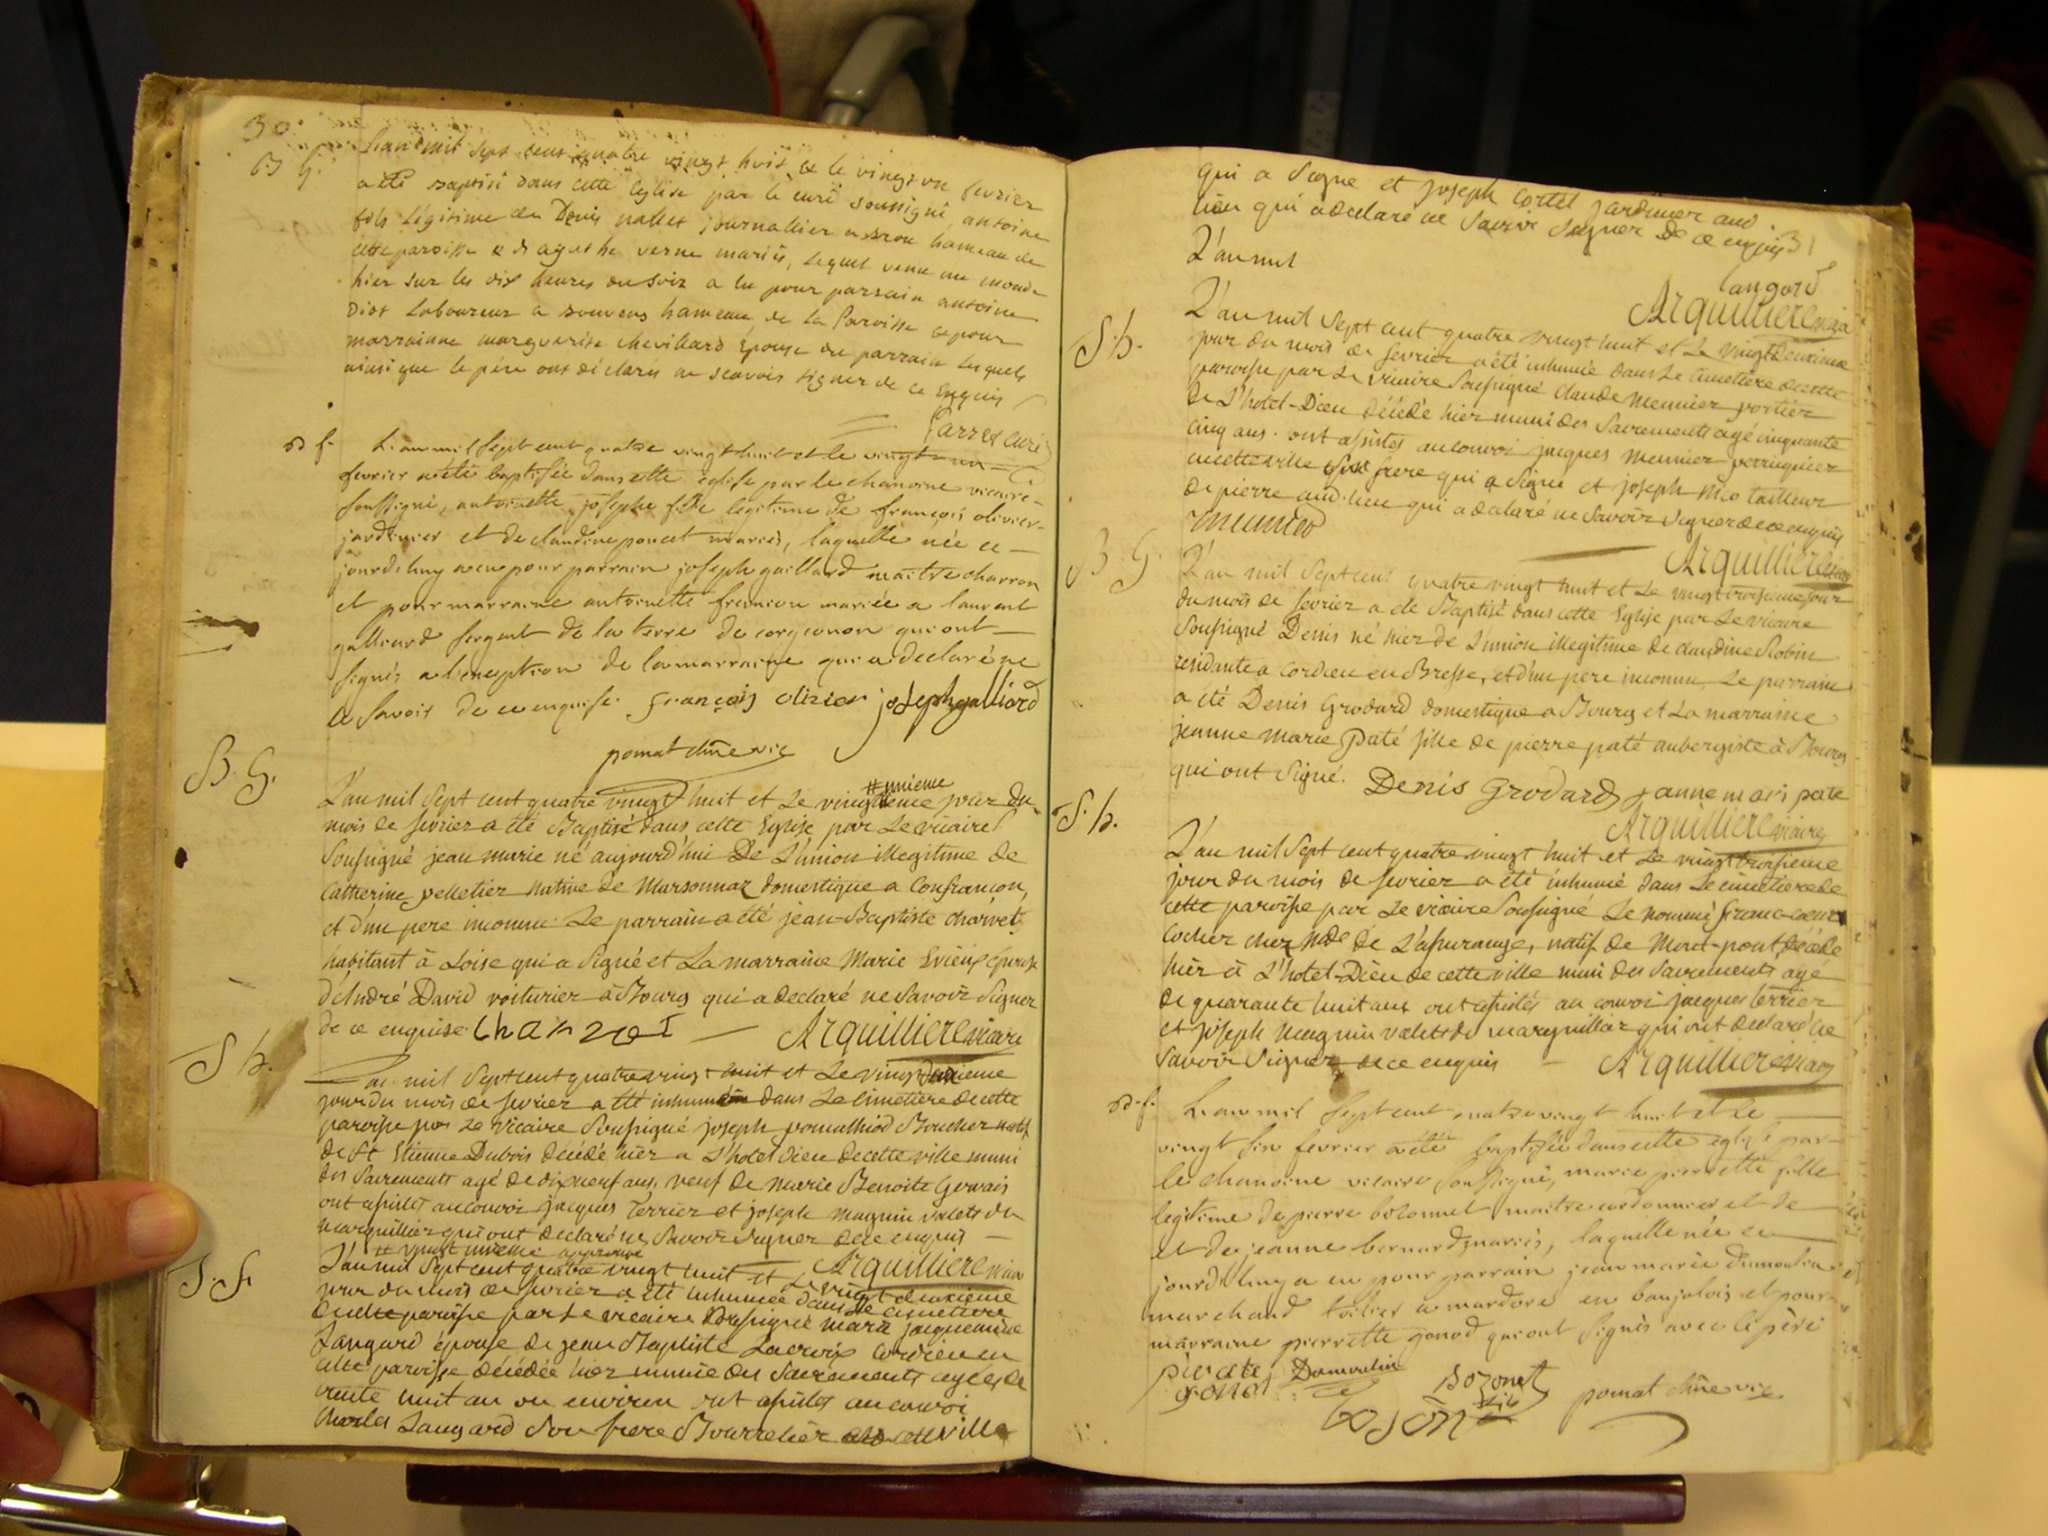 30.
B G.
L'an mil sept cent quatre vingt huit et le vingt un fevrier
a été Baptisé dans cette Eglise par le curé soussigné antoine
fils légitime de Denis nallet journalier a Brou hameau de
cette paroisse et d'agathe verne mariés, lequel venu au monde
hier sur les dix heures du soir a eu pour parrain antoine
Diot Laboureur a bouvens hameau de la Paroisse et pour
marrainne marguerite chevillard Epouse du parrain lesquels
ainsi que le pére ont déclarés ne scavoir signer de ce Enquis
curé
B f.
L'an mil sept cent quatre vingt huit et le vingt un
fevrier a été baptisée dans cette église par le chanoine vicaire
soussigné, antoinette josephe fille legitime de françois olivier
jardinier et de claudine poncet mariés, laquelle née ce
jourd'huy a eu pour parrain joseph gaillard maitre charron
et pour marraine antoinette mariée a laurent
galliard sergent de la terre de corgenon qui ont
signés a l'exception de la marraine qui a declaré ne
le savoir de ce enquise. françois olivier joseph galliard
pomat chne vic
B. G.
L'an mil Sept cent quatre vingt huit et Le vingt #unieme jour du
mois de fevrier a été Baptisé dans cette Eglise par Le vicaire
Soussigné jean marie né aujourd'hui De L'union illegitime de
Catherine pelletier native de Marsonnaz domestique a Confrançon,
et d'un pere inconnu. Le parrain a été jean-Baptiste charvet
habitant à Loise qui a Signé et La marraine Marie Evieux épouse
d'André David voiturier à Bourg qui a declaré ne Savoir Signer
de ce enquise. Arquilliere vicaire
S h.
L'an mil Sept cent quatre vingt huit et Le vingt
jour du mois de fevrier a été inhumé dans Le cimetiere de cette
paroisse par Le Vicaire Soussigné joseph pomathiod Boucher natif
de St Etienne Dubois décédé hier a L'hotel Dieu de cette ville muni
des Sacrements agé de dixneuf ans, veuf de Marie Benoite Gervais
ont assistés au convoi jacques Terrier et joseph Magnin valets du
marguillier qui ont declaré ne Savoir Signer de ce enquis
# vingt unieme approuvé Arquilliere vicaire
S. f.
L'an mil Sept cent quatre vingt huit et Le vingt deuxieme
jour du mois de fevrier a été inhumée dans Le cimetiere
de cette paroisse par Le vicaire Soussigné Marie jacqueline
Langard épouse de jean Baptiste Lacroix
cette paroisse décédée hier munie des Sacrements agée de
trente huit an ou environ ont assistés au convoi
Charles Langard Son frere Bourrelier en cette ville
31
qui a Signé et joseph Cortel jardinier aud.
lieu qui a declaré ne Savoir Signer De ce enquis
L'an mil
langard
Arquilliere vicaire
S. h.
L'an mil Sept cent quatre vingt huit et Le vingt deuxieme
jour du mois de fevrier a été inhumé dans Le cimetiere de cette
paroisse par Le vicaire Soussigné Claude Meunier portier
de L'hotel-Dieu décédé hier muni des Sacrements agé cinquante
cinq ans. ont assistés au convoi jacques Meunier perruquier
en cette ville Son frere qui a Signé et joseph tailleur
de pierre aud. lieu qui a declaré ne Savoir Signer de ce enquis
meunier
Arquilliere vicaire
B G.
L'an mil Sept cent quatre vingt huit et Le vingt troisieme jour
du mois de fevrier a été Baptisé dans cette Eglise par Le vicaire
Soussigné Denis né hier de L'union illegitime de claudine Robin
residante a Cordieu en Bresse, et d'un pere inconnu. Le parrain
a été Denis Grodard domestique a Bourg et La marraine
jeanne Marie Paté fille de pierre paté aubergiste à Bourg
qui ont Signé. Denis Grodard janne mari pate
Arquilliere vicaire
S. h.
L'an mil Sept cent quatre vingt huit et Le vingt troisieme
jour du mois de fevrier a été inhumé dans Le cimetiere de
cette paroisse par Le vicaire Soussigné Le nommé franc-coeur
Cocher chez Mde de natif de Mord-pont, décédé
hier à L'hotel-Dieu de cette ville muni des Sacrements agé
de quarante huit ans ont assistés au convoi jacques Terrier
et joseph Magnin valets de marguillier qui ont declaré ne
Savoir Signer de ce enquis Arquilliere vicaire
B. f.
L'an mil sept cent quatre vingt huit et le
vingt six fevrier a été baptisée dans cette église par
le chanoine vicaire soussigné, marie pierrette fille
legitime de pierre maitre cordonnier et de
et de jeanne bernard mariés, laquelle née ce
jourd'huy a eu pour parrain jean marie dumoulin
marchand toilier a mardore en baujolois et pour
marraine pierrette gonod qui ont signés avec le père
pierete Dumoulin
gonod Bozonet pomat chne vic